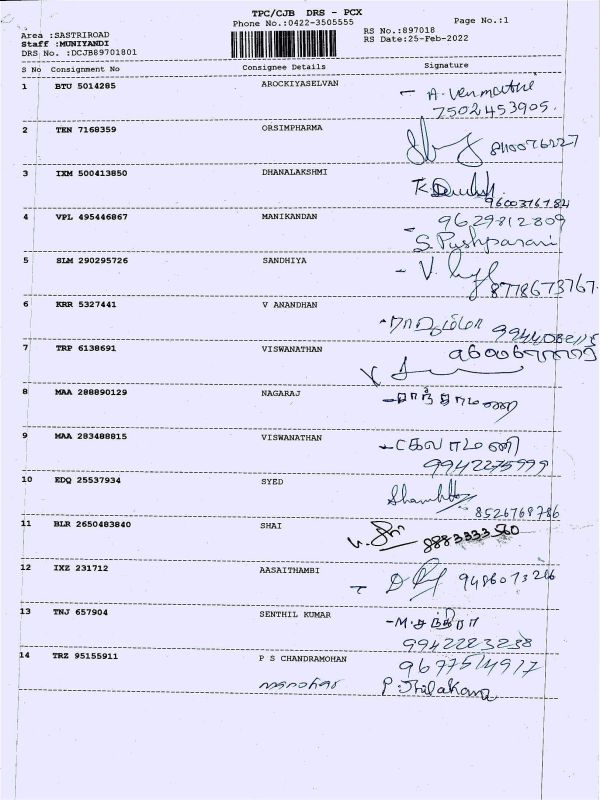 TPC/CJB DRS - PCX
Phone No.:0422-3505555 Page No.:1
Area :SASTRIROAD
Staff :MUNIYANDI
DRS No. :DCJB89701801
RS No.:897018
RS Date:25-Feb-2022
S No Consignment No Consignee Details Signature
1 BTU 5014285 AROCKIYASELVAN - A. Venmathi
7502453905.
2 TEN 7168359 ORSIMPHARMA
3 IXM 500413850 DHANALAKSHMI
9600376784
4 VPL 495446867 MANIKANDAN 9629812809
S. Pushparani
5 SLM 290295726 SANDHIYA - V.
8778673767.
6 KRR 5327441 V ANANDHAN
7 TRP 6138691 VISWANATHAN
V
8 MAA 288890129 NAGARAJ
9 MAA 283488815 VISWANATHAN
9942275999
10 EDQ 25537934 SYED
8526768786
11 BLR 2650483840 SHAI 8883333560
12 IXZ 231712 AASAITHAMBI
13 TNJ 657904 SENTHIL KUMAR -M. சந்திரா
9942223238
14 TRZ 95155911 P S CHANDRAMOHAN 9677514917
மனோகர் P. Thilakana